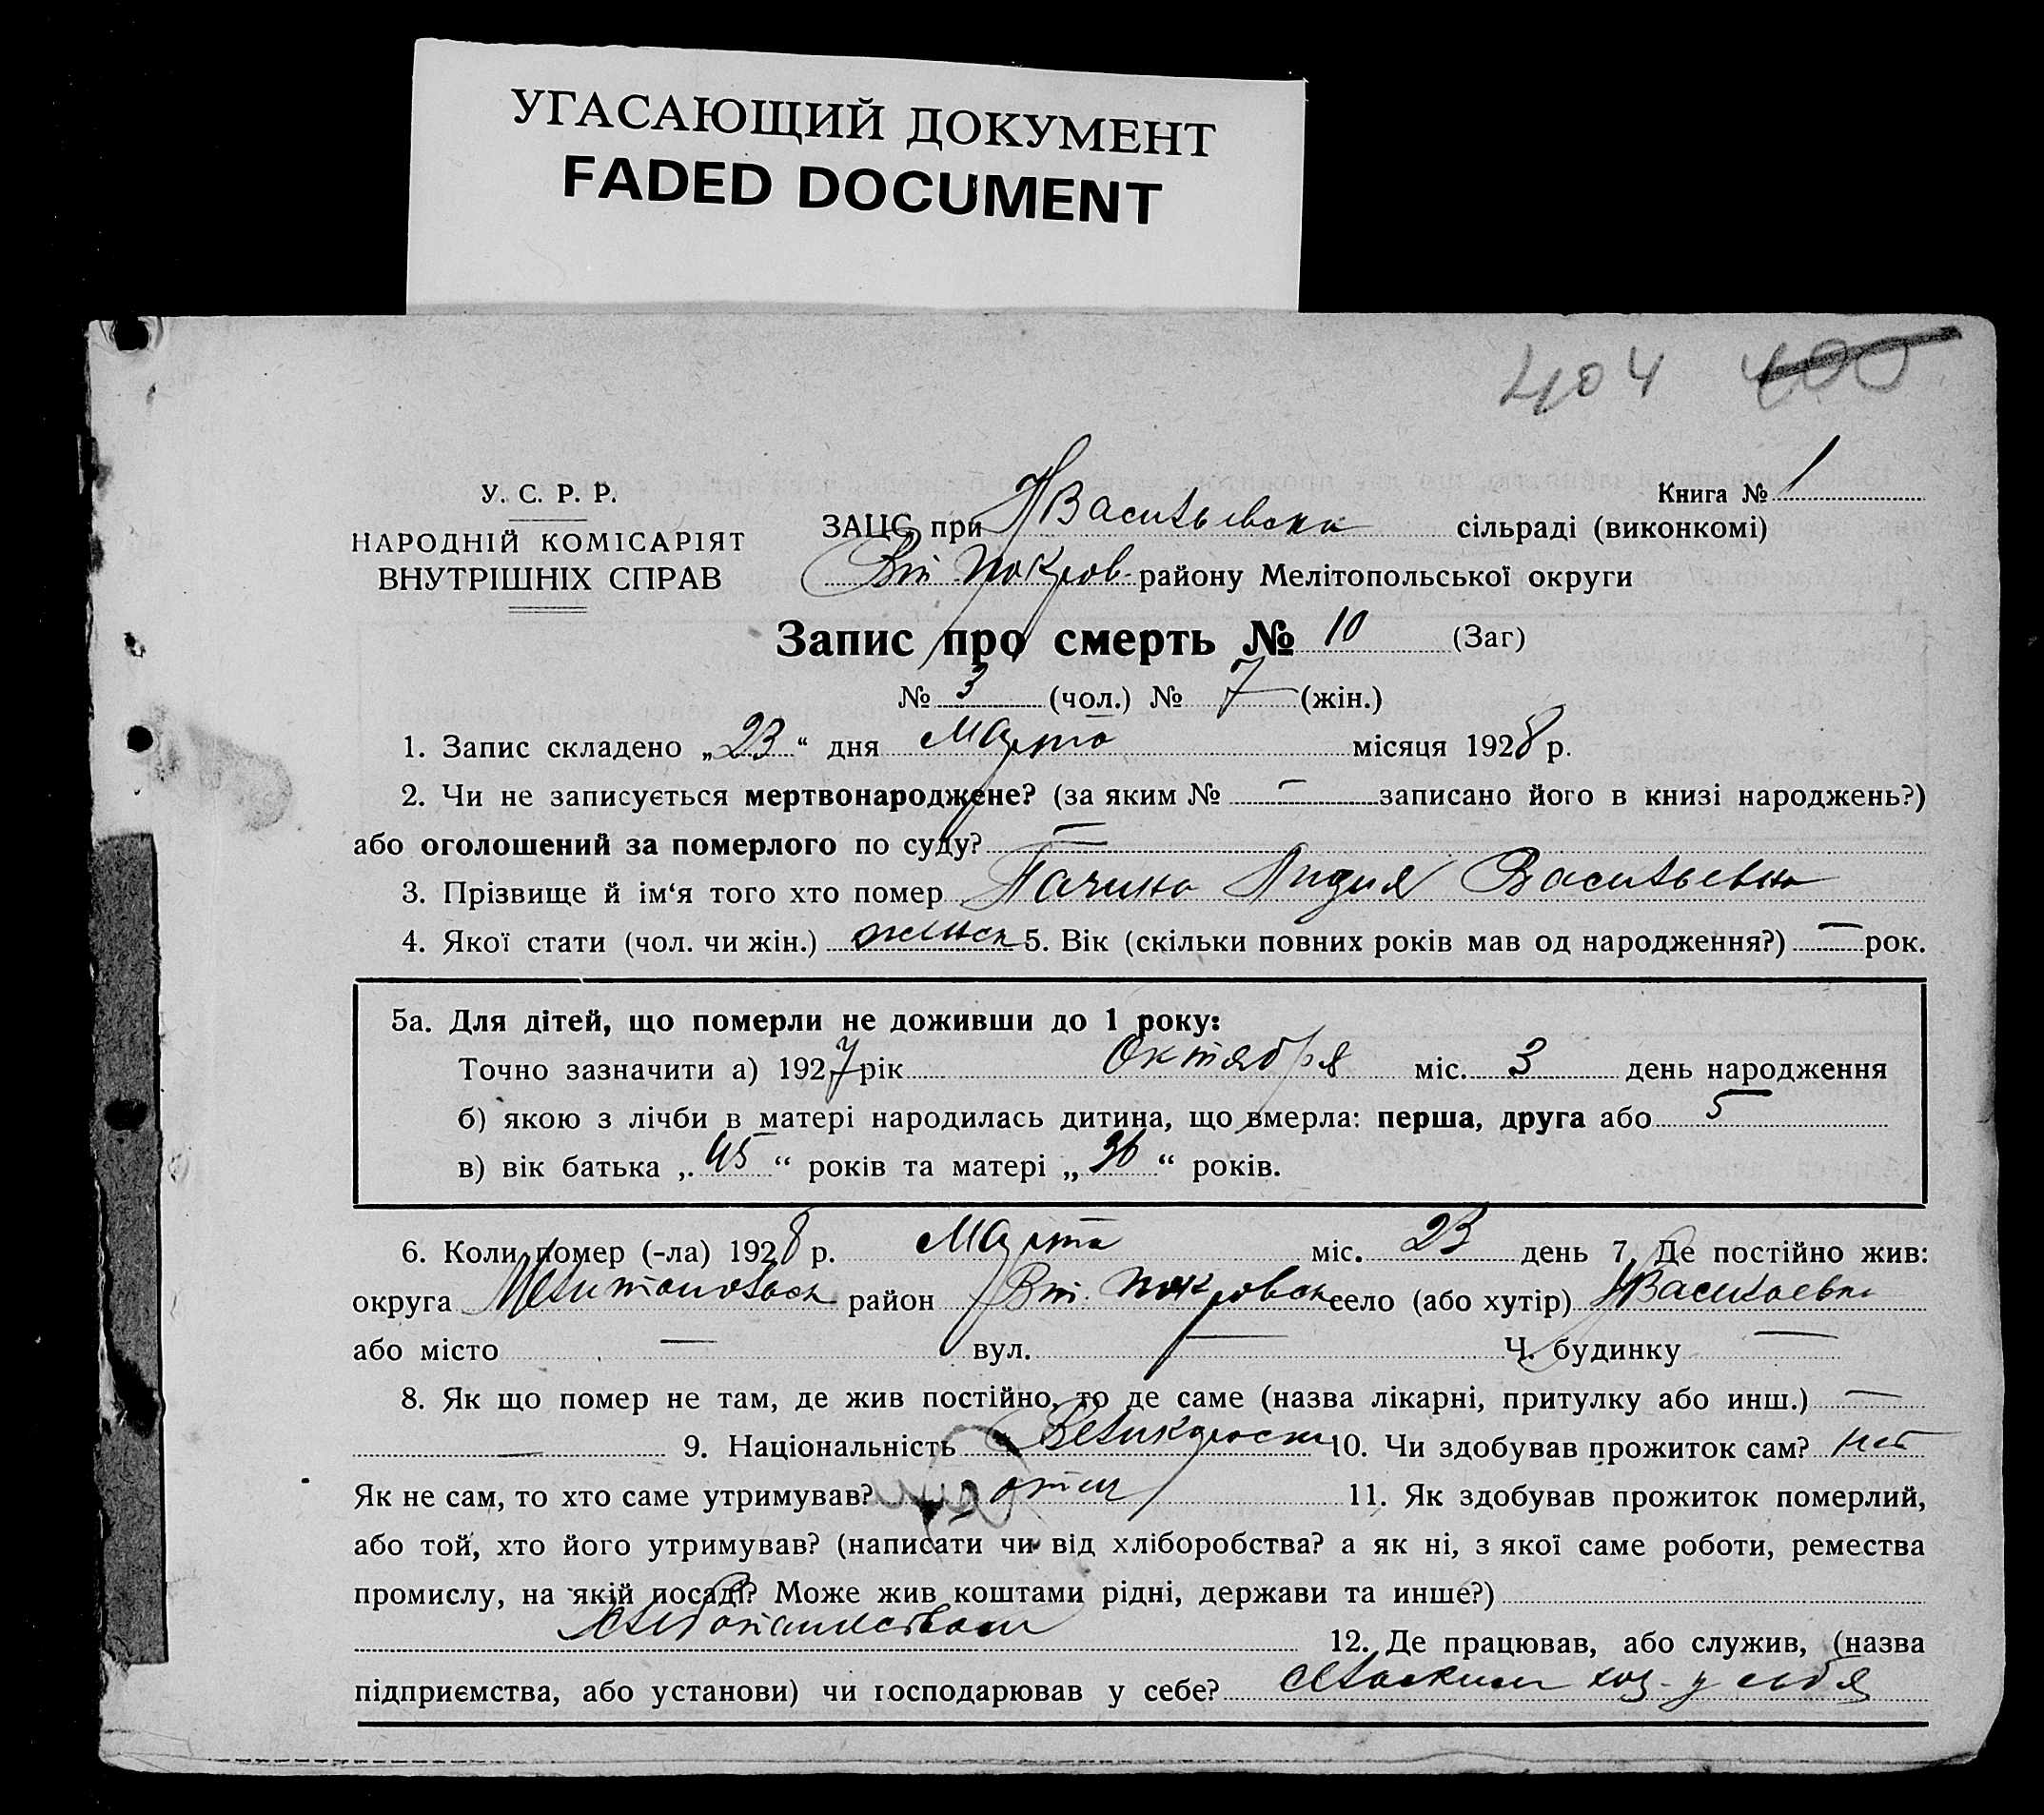 УГАСАЮЩИЙ ДОКУМЕНТ
FADED DOCUMENT
404 400
У. С. Р. Р.
НАРОДНІЙ КОМІСАРІЯТ
ВНУТРІШНІХ СПРАВ
Книга № 1
ЗАЦС при НВасильевской сільраді (виконкомі)
Вт Покров. району Мелітопольської округи
Запис про смерть № 10 (Заг)
№ 3 (чол.) № 7 (жін.)
1. Запис складено „23“ дня Марта місяця 1928 р.
2. Чи не записується мертвонароджене? (за яким № — записано його в книзі народжень?)
або оголошений за померлого по суду? —
3. Прізвище й ім‘я того хто помер Лидия Васильевна
4. Якої стати (чол. чи жін.) женск 5. Вік (скільки повних років мав од народження?) — рок.
5а. Для дітей, що померли не доживши до 1 року:
Точно зазначити а) 1927 рік Октября міс. 3 день народження
б) якою з лічби в матері народилась дитина, що вмерла: перша, друга або 5
в) вік батька „45“ років та матері „36“ років.
6. Коли помер (-ла) 1928 р. Марта міс. 23 день 7. Де постійно жив:
округа Мелитопольск район Вт. Покровск село (або хутір) НВасильевка
або місто — вул. — Ч. будинку —
8. Як що помер не там, де жив постійно, то де саме (назва лікарні, притулку або инш.) —
— 9. Національність Великоросс 10. Чи здобував прожиток сам? нет
Як не сам, то хто саме утримував? отец 11. Як здобував прожиток померлий,
або той, хто його утримував? (написати чи від хліборобства? а як ні, з якої саме роботи, ремества
промислу, на якій посаді? Може жив коштами рідні, держави та инше?)
хлебопашеством 12. Де працював, або служив, (назва
підприємства, або установи) чи господарював у себе? сельским хоз. у себя